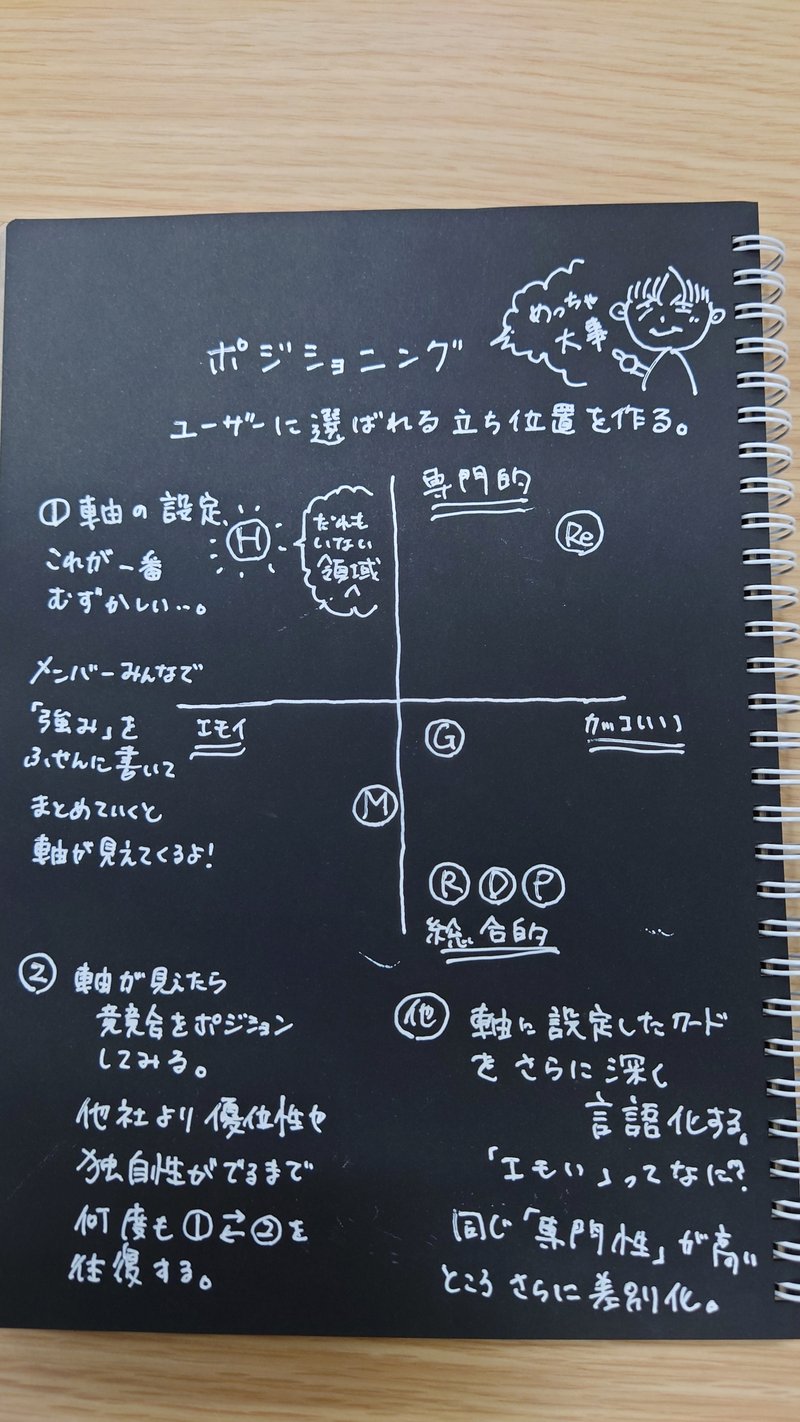 めっちゃ
大事
ポジショニング
ユーザーに選ばれる立ち位置を作る。
① 軸の設定
これが一番
むずかしい…。
H
だれも
いない
領域へ
専門的
Re
メンバーみんなで
「強み」を
ふせんに書いて
まとめていくと
軸が見えてくるよ!
エモイ
カッコいい
G
M
R D P
総合的
② 軸が見えたら
競合をポジション
してみる。
他社より優位性や
独自性がでるまで
何度も①⇄②を
往復する。
他 軸に設定したワード
をさらに深く
言語化する。
「エモい」ってなに?
同じ「専門性」が高い
ところさらに差別化。